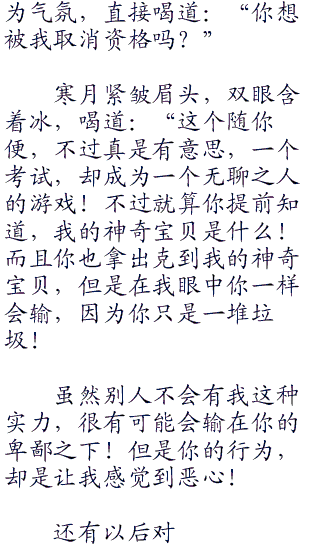 为气氛，直接喝道：“你想
被我取消资格吗？”
寒月紧皱眉头，双眼含
着冰，喝道：“这个随你
便，不过真是有意思，一个
考试，却成为一个无聊之人
的游戏！不过就算你提前知
道，我的神奇宝贝是什么！
而且你也拿出克到我的神奇
宝贝，但是在我眼中你一样
会输，因为你只是一堆垃
圾！
虽然别人不会有我这种
实力，很有可能会输在你的
卑鄙之下！但是你的行为，
却是让我感觉到恶心！
还有以后对